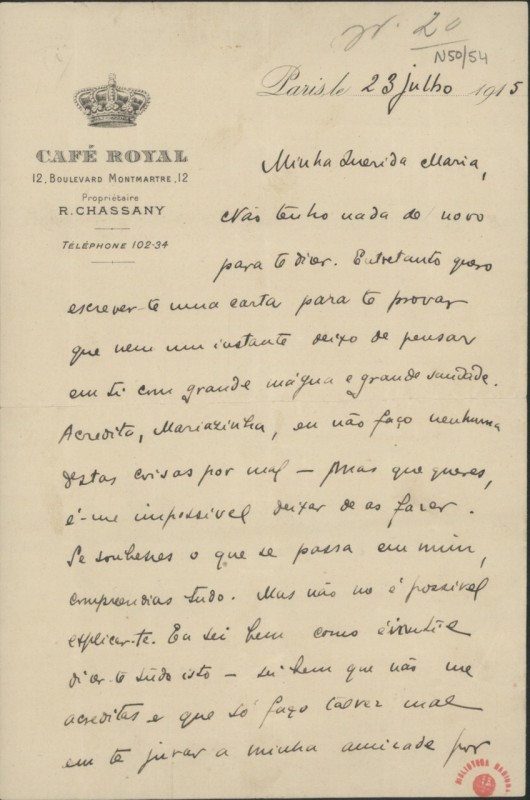 Nº 20
N50/54
Paris, le 23 julho 1915
CAFÉ ROYAL
12, BOULEVARD MONTMARTRE, 12
Propriétaire
R. CHASSANY
TÉLÉPHONE 102-34
Minha Querida Maria,
Não tenho nada de novo
para te dizer. Entretanto quero
escrever-te uma carta para te provar
que nem um instante deixo de pensar
em ti com grande mágua e grande saudade.
Acredita, Mariazinha, eu não faço nenhuma
destas coisas por mal — Mas que queres,
é-me impossivel deixar de as fazer.
Se soubesses o que se passa em mim,
comprendias tudo. Mas não no é possivel
explicar-te. Eu sei bem como é inutil
dizer-te tudo isto — sei bem que não me
acreditas e que só faço talvez mal
em te jurar a minha amizade por
BIBLIOTECA NACIONAL